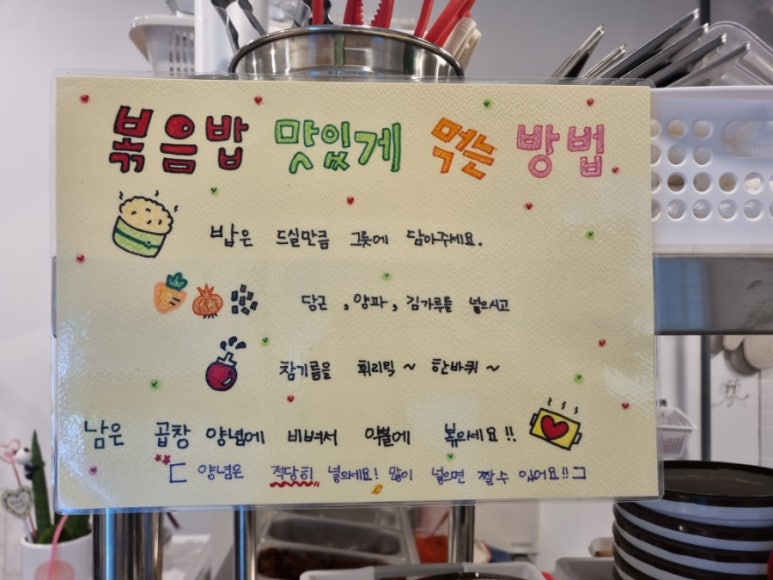 볶음밥 맛있게 먹는 방법
밥은 드실만큼 그릇에 담아주세요.
당근, 양파, 김가루를 넣으시고
참기름을 휘리릭 ~ 한바퀴 ~
남은 곱창 양념에 비벼서 약불에 볶으세요!!
[ 양념은 적당히 넣으세요! 많이 넣으면 짤 수 있어요!! ]